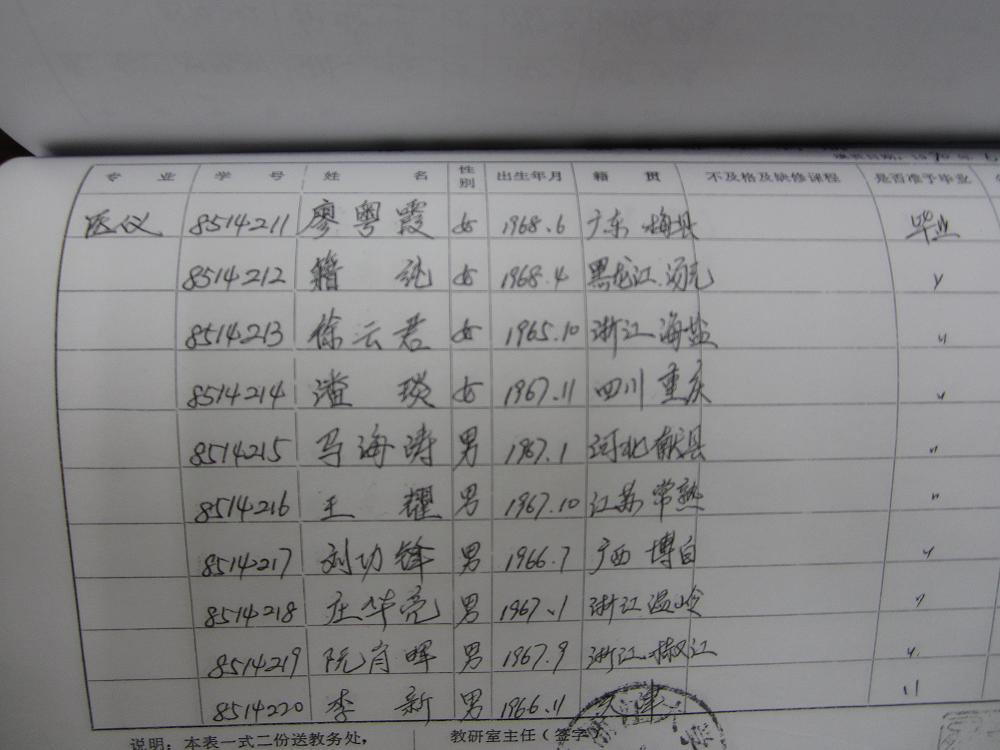 专 业 学 号 姓 名 性别 出生年月 籍 贯 不及格及缺修课程 是否准予毕业
医仪 8514211 廖粤霞 女 1968.6 广东 梅县 毕业
8514212 籍 纯 女 1968.4 黑龙江 汤元 〃
8514213 徐云君 女 1965.10 浙江 海盐 〃
8514214 潘 琰 女 1967.11 四川 重庆 〃
8514215 马海涛 男 1967.1 河北 献县 〃
8514216 王 耀 男 1967.10 江苏 常熟 〃
8514217 刘功锋 男 1966.7 广西 博白 〃
8514218 庄华亮 男 1967.1 浙江 温岭 〃
8514219 阮肖晖 男 1967.9 浙江 椒江 〃
8514220 李 新 男 1966.11 天津 〃
说明：本表一式二份送教务处， 教研室主任（签字）